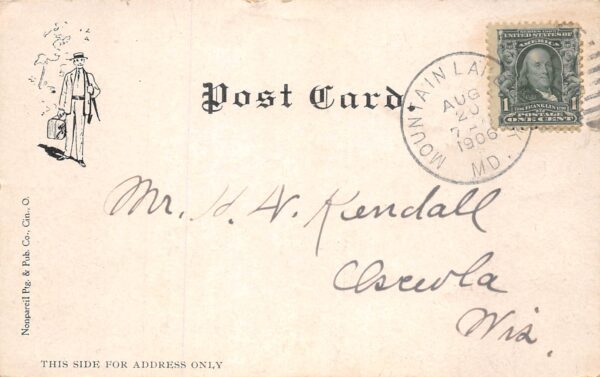 Post Card.
MOUNTAIN LA
AUG
20
7
1906
MD.
SERIES 1902
UNITED STATES OF
AMERICA
FRANKLIN
1
1
POSTAGE
ONE CENT
Mr. H. W. Kendall
Osceola
Wis.
Nonpareil Ptg. & Pub. Co., Cin., O.
THIS SIDE FOR ADDRESS ONLY